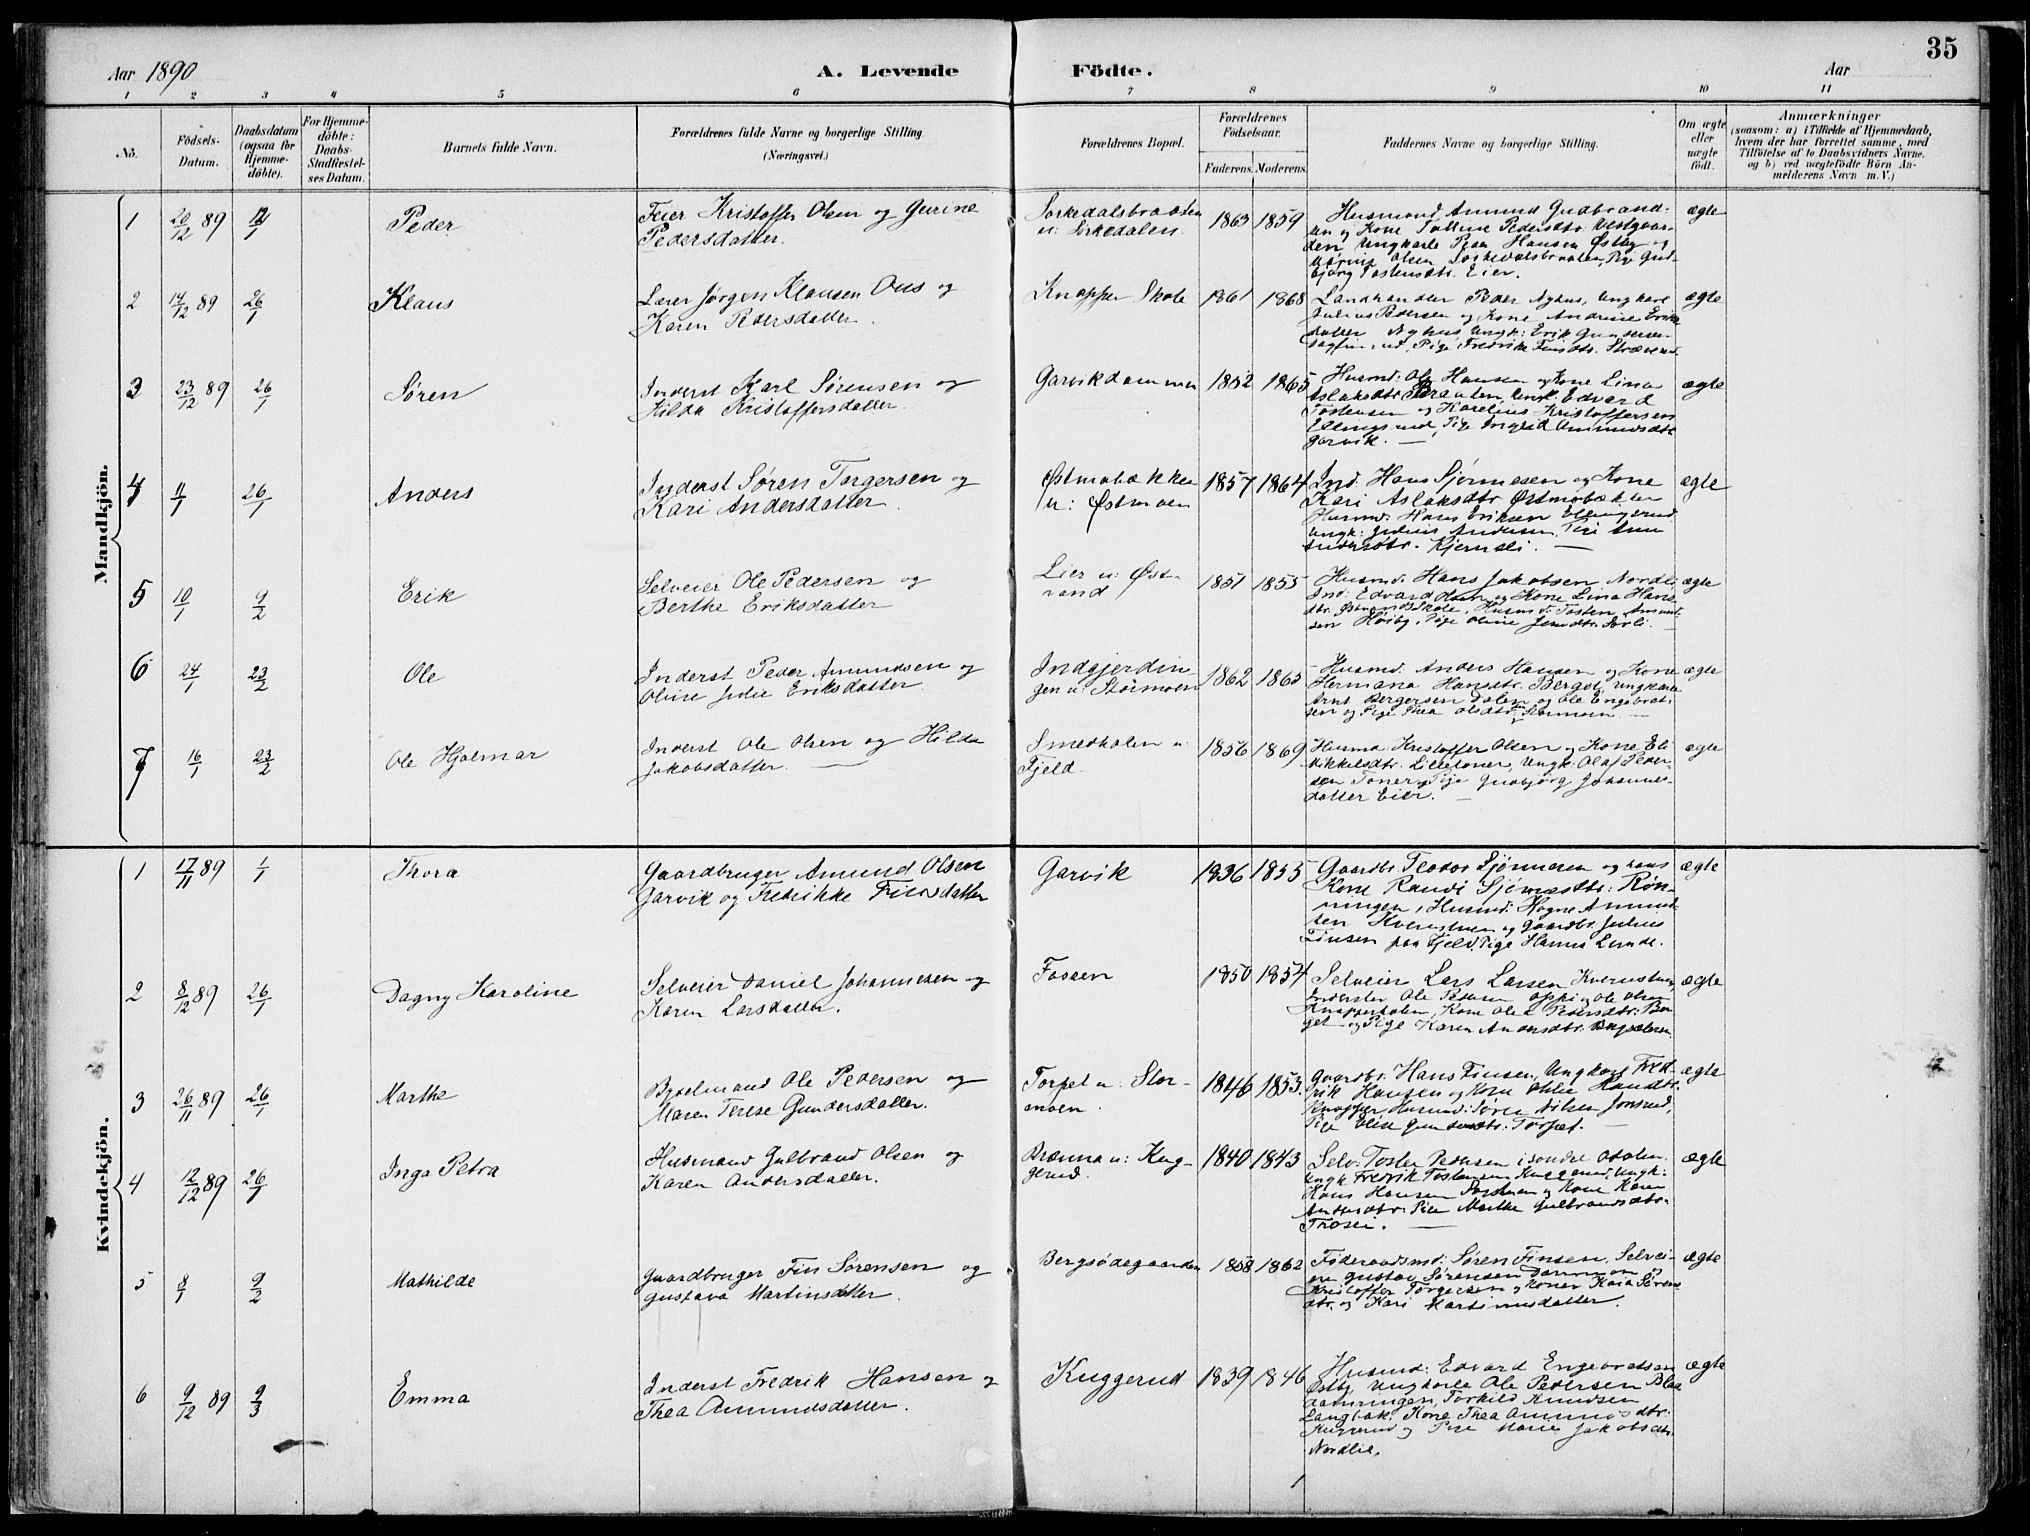 35
Aar 1890
A. Levende Födte.
Aar
1 2 3 4 5 6 7 8 9 10 11
No.
Födsels-Datum.
Daabsdatum (ogsaa for Hjemmedöbte).
For Hjemmedöbte: Daabs-Stadfæstelses Datum.
Barnets fulde Navn.
Forældrenes fulde Navne og borgerlige Stilling. (Næringsvei.)
Forældrenes Bopæl.
Forældrenes Födselsaar.
Faderens. Moderens.
Faddernes Navne og borgerlige Stilling.
Om ægte eller uægte födt.
Anmærkninger
(saasom: a) i Tilfælde af Hjemmedaab, hvem der har forrettet samme, med Tilföielse af to Daabsvidners Navne. og b) ved uægtefödte Börn Anmelderens Navn m. V.)
Mandkjön.
1 20/12 89 12/1 Peder
Eier Kristoffer Olsen og Gurine
Pedersdatter.
Sorkedalsbraaten
u: Sorkedalen. 1863 1859
Husmand Amund Gudbrand-
sen og Kone Pedersdtr. Vestgaar-
den, Ungkarle Peder Hansen Østby og
Olsen Sorkedalsbraaten, Pige Gud-
bjørg Tostensdtr. Eier.
ægte
2 14/12 89 26/1 Klaus
Lærer Jørgen Klausen Ous og
Karen Pedersdatter.
Knapper Skole 1861 1868
Landhandler Peder Nyhus, Ungkarl
Julius Pedersen og Kone Andrine Eriks
datter Nyhus, Ungk: Erik Gundersen
Pige Fredrikke Finsdtr.
ægte
3 23/12 89 26/1 Søren
Inderst Karl Sørensen og
Hilda Kristoffersdatter.
Garvikdammen 1852 1865
Husmd: Ole Hansen og Kone Lina
Aslaksdtr. Braaten, Ungk: Edvard
Tostensen og Karelius Kristoffersen
Ellingsrud, Pige Ingeld Amundsdtr.
Garvik.
ægte
4 11/1 26/1 Anders
Inderst Søren Torgersen og
Kari Andersdatter.
Østmobækken
u: Østmoen 1857 1864
Ind. Hans Sjønnesen og Kone
Kari Aslaksdtr. Østmobækken
Husmd: Hans Eriksen Ellingsrud
Ungk: Julius Andersen, Pige Anne
Andersdtr. Kjernsli.
ægte
5 10/1 9/2 Erik
Selveier Ole Pedersen og
Berthe Eriksdatter
Lier u: Øst-
rand 1851 1855
Husmd. Hans Jakobsen Nordli,
Ind: Edvard Olsen og Kone Lina Hans
dtr. Østrand Skole, Husmd: Tosten Amund-
sen Høiby, Pige Oline Jensdtr. Sørli.
ægte
6 24/1 23/2 Ole
Inderst Peder Amundsen og
Oline Julie Eriksdatter
Indgjerdin
gen u: Stormoen 1862 1865
Husmd: Anders Hansen og Kone
Hermana Hansdtr. Berget, Ungkarle
Arnt Bergersen Dalen og Ole Engebret-
sen og Pige Thea Olsdtr. Stormoen.
ægte
7 16/1 23/2 Ole Hjalmar
Inderst Ole Olsen og Hilda
Jakobsdatter.
Smedholen u:
Fjeld. 1856 1869
Husmd: Kristoffer Olsen og Kone Eli
Mikkelsdtr. Lilletoner, Ungk: Olaf Peder-
sen Toner, Pige Gudbjørg Johannes-
datter Eier.
ægte
Kvindekjön.
1 17/11 89 1/1 Thora
Gaardbruger Amund Olsen
Garvik og Fredrikke Finsdatter
Garvik 1836 1855
Gaardbr: Teodor Sjønnesen og hans
Kone Randi Sjønnesdtr: Røn-
ningen, Husmd: Hogne Amund-
sen Kvernstuen og Gaardbr. Julius
Finsen paa Fjeld, Pige Hanna Lunde.
ægte
2 8/12 89 26/1 Dagny Karoline
Selveier Daniel Johannesen og
Karen Larsdatter.
Fossen 1850 1854
Selveier Lars Larsen Kvernstuen,
Inderster Ole Pedersen Oppi og Ole Olsen
Knapperholen, Kone Olea Pedersdtr. Ber-
get og Pige Karen Andersdtr.
ægte
3 26/11 89 26/1 Marthe
Bygselmand Ole Pedersen og
Maren Terese Gundersdatter.
Torpet u: Stor-
moen. 1846 1853.
Gaardbr: Hans Finsen, Ungkarl Fred-
rik Hansen og Kone Olia Hansdtr.
Knapper, Husmd: Søren Nilsen Jonsrud,
Pige Elise Gundersdtr. Torpet.
ægte
12
4 12/12 89 26/1 Inga Petra
Husmand Gulbrand Olsen og
Karen Andersdatter.
Brænna u: Kug-
gerud. 1840 1843
Selv: Tosten Pedersen i søndre Odalen,
Ungk Fredrik Tostensen Kuggerud, Ungk:
Hans Hansen og Kone Karen
Andersdtr. Pige Marthe Gulbrandsdtr.
Troséi.
ægte
5 8/1 9/2 Mathilde
Gaardbruger Fin Sørensen og
Gustava Martinsdatter.
Bergsødegaarden 1858 1862
Föderaadsmd: Søren Finsen, Selvei-
ere Gustav Sørensen Dammen og
Kristoffer Torgersen og Koner Kaia Sørens
dtr. og Kari Martinusdatter.
ægte
6 9/12 89 9/3 Emma
Inderst Fredrik Hansen og
Thea Amundsdatter.
Kuggerud 1839 1846
Husmd: Edvard Engebretsen
Østby, Ungkarle Ole Pedersen Blaa
aamyringen, Torkild Knudsen
Langbak, Kone Thea Amundsdtr.
Kuggerud og Pige Marie Jakobsdtr.
Nordlie.
ægte